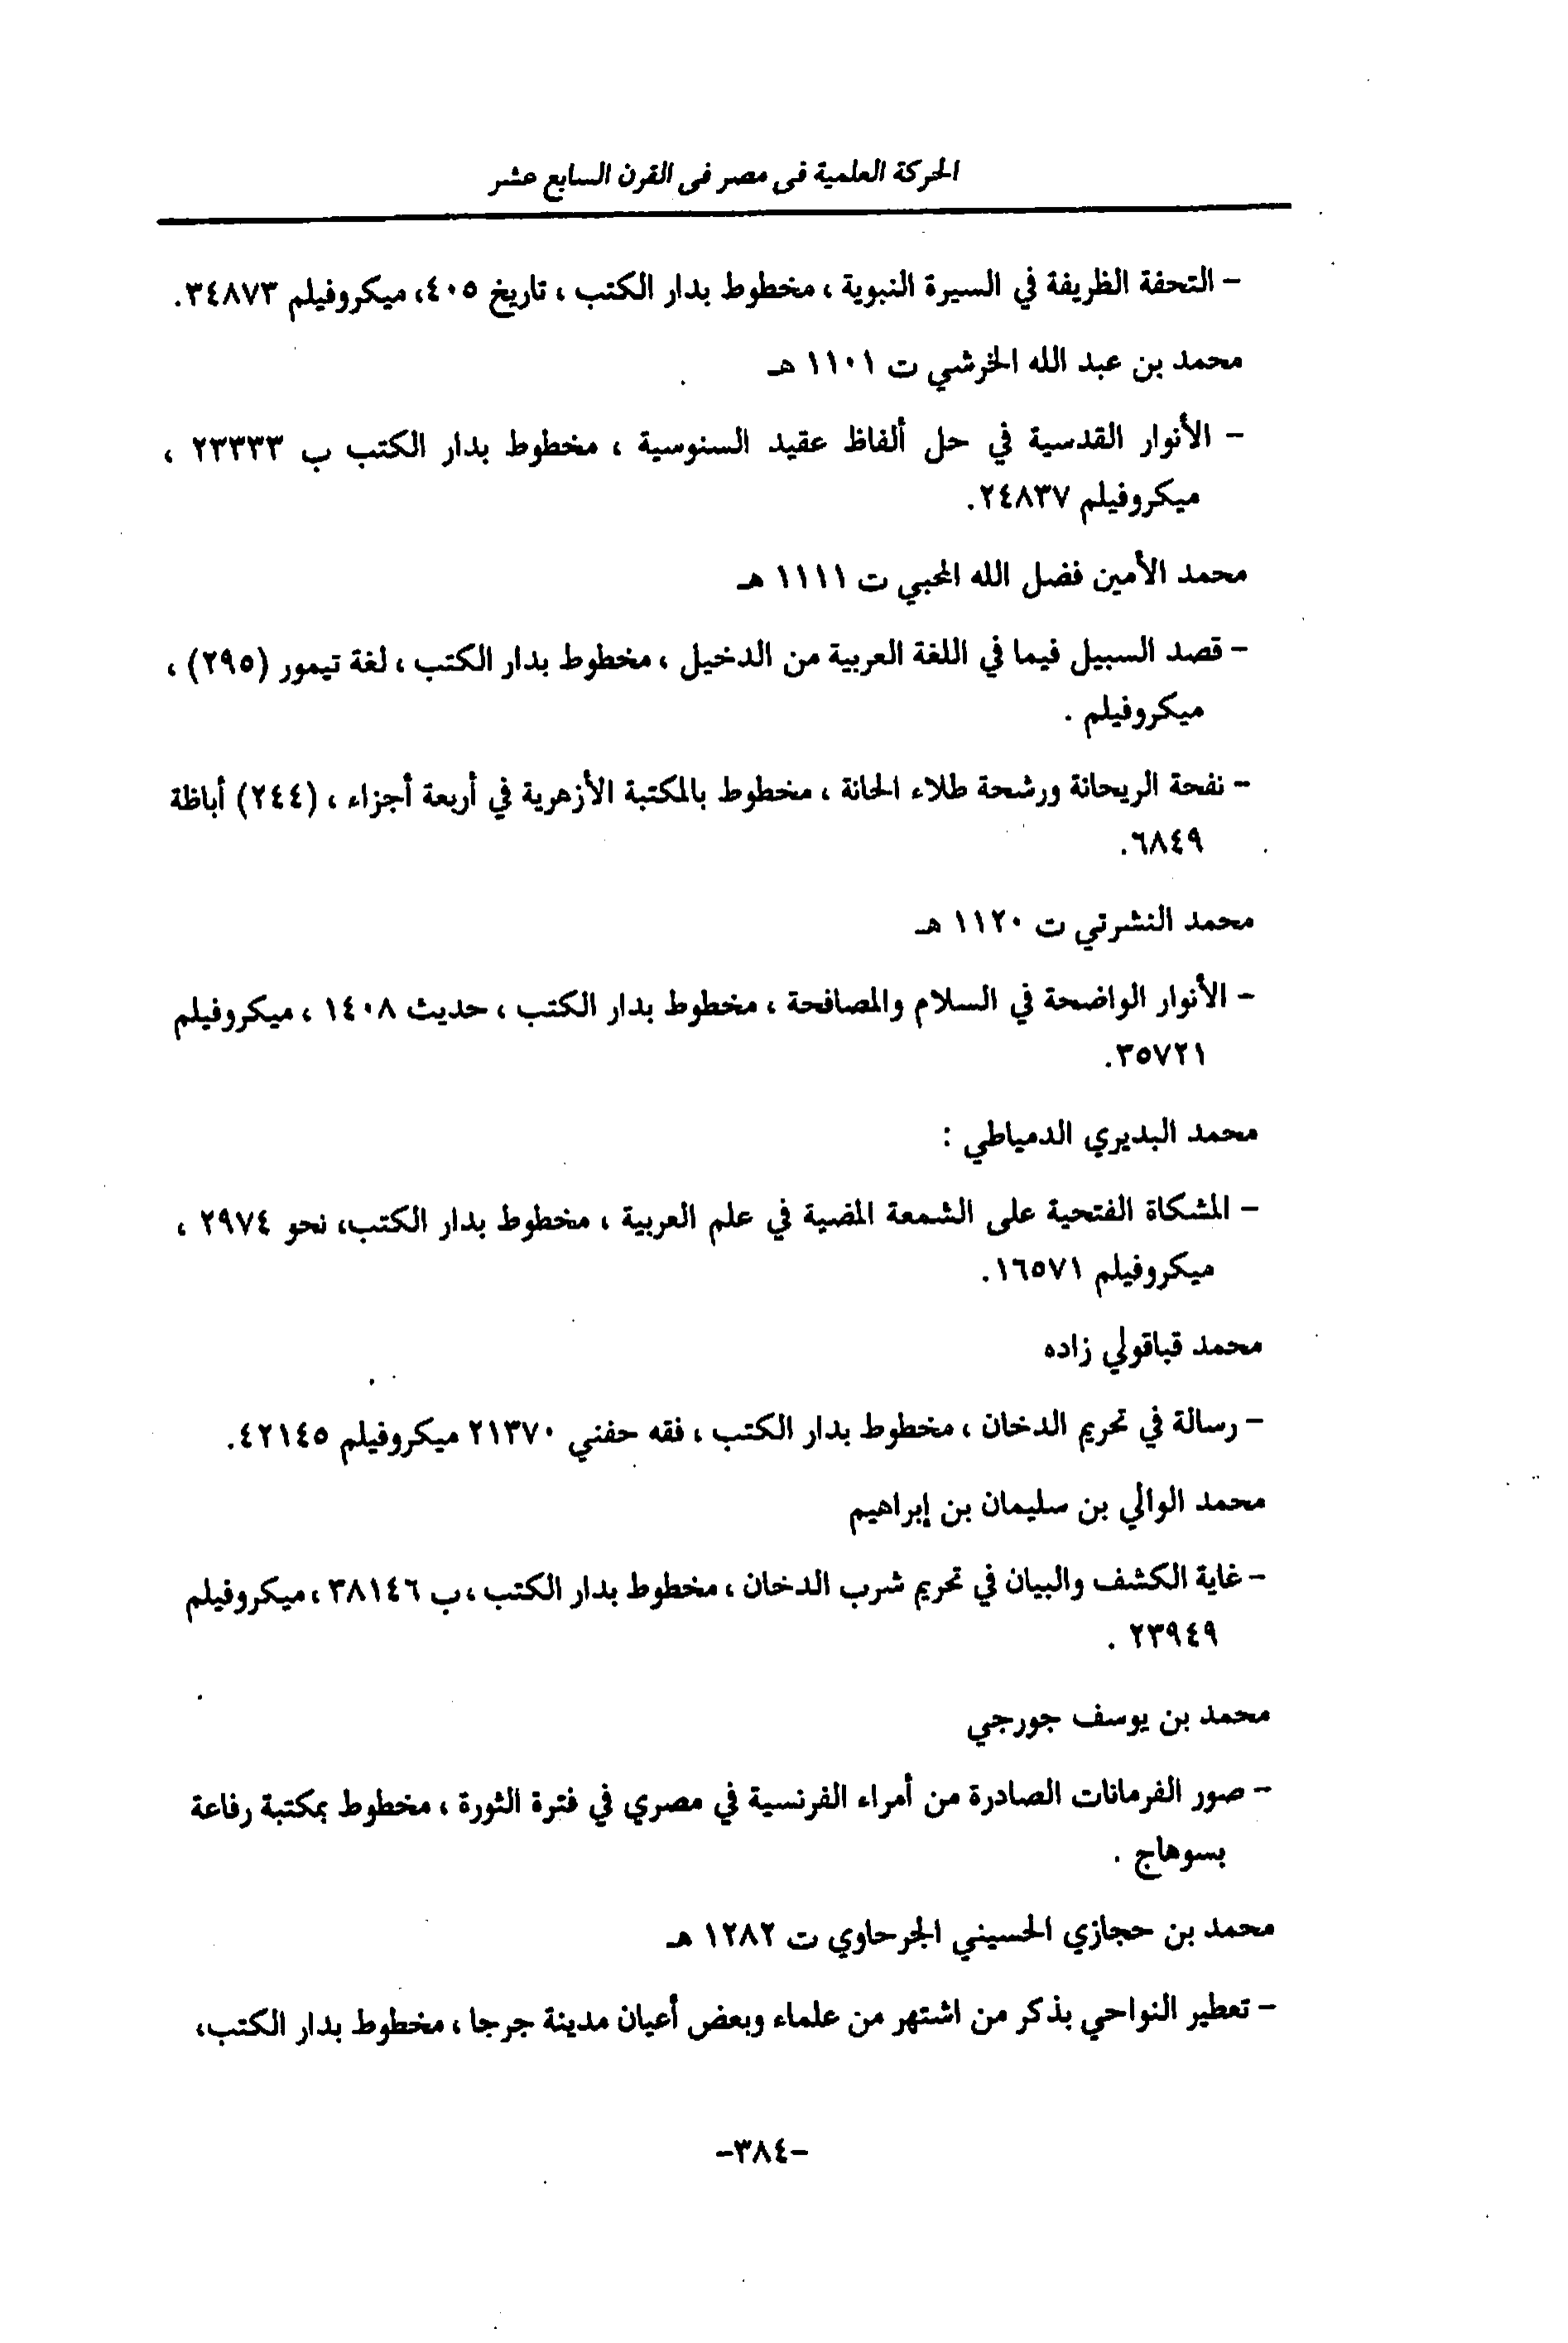 الحركة العلمية فى مصر فى القرن السابع عشر
- التحفة الظريفة في السيرة النبوية ، مخطوط بدار الكتب ، تاريخ ٤٠٥، ميكروفيلم ٣٤٨٧٣.
محمد بن عبد الله الخرشي ت ١١٠١ هـ
- الأنوار القدسية في حل ألفاظ عقيد السنوسية ، مخطوط بدار الكتب ب ٢٣٣٣٣ ،
ميكروفيلم ٢٤٨٣٧.
محمد الأمين فضل الله المحبي ت ١١١١ هـ
- قصد السبيل فيما في اللغة العربية من الدخيل ، مخطوط بدار الكتب ، لغة تيمور (٢٩٥) ،
ميكروفيلم .
- نفحة الريحانة ورشحة طلاء الحانة ، مخطوط بالمكتبة الأزهرية في أربعة أجزاء ، (٢٤٤) أباظة
٦٨٤٩.
محمد النشرتي ت ١١٢٠ هـ
- الأنوار الواضحة في السلام والمصافحة ، مخطوط بدار الكتب ، حديث ١٤٠٨ ، ميكروفيلم
٣٥٧٢١.
محمد البديري الدمياطي :
- المشكاة الفتحية على الشمعة المضية في علم العربية ، مخطوط بدار الكتب، نحو ٢٩٧٤ ،
ميكروفيلم ١٦٥٧١.
محمد قباقولي زاده
- رسالة في تحريم الدخان ، مخطوط بدار الكتب ، فقه حفني ٢١٣٧٠ ميكروفيلم ٤٢١٤٥.
محمد الوالي بن سليمان بن إبراهيم
- غاية الكشف والبيان في تحريم شرب الدخان ، مخطوط بدار الكتب ، ب ٣٨١٤٦ ، ميكروفيلم
٢٣٩٤٩ .
محمد بن يوسف جورجي
- صور الفرمانات الصادرة من أمراء الفرنسية في مصري في فترة الثورة ، مخطوط بمكتبة رفاعة
بسوهاج .
محمد بن حجازي الحسيني الجرحاوي ت ١٢٨٢ هـ
- تعطير النواحي بذكر من اشتهر من علماء وبعض أعيان مدينة جرجا ، مخطوط بدار الكتب،
-٣٨٤-